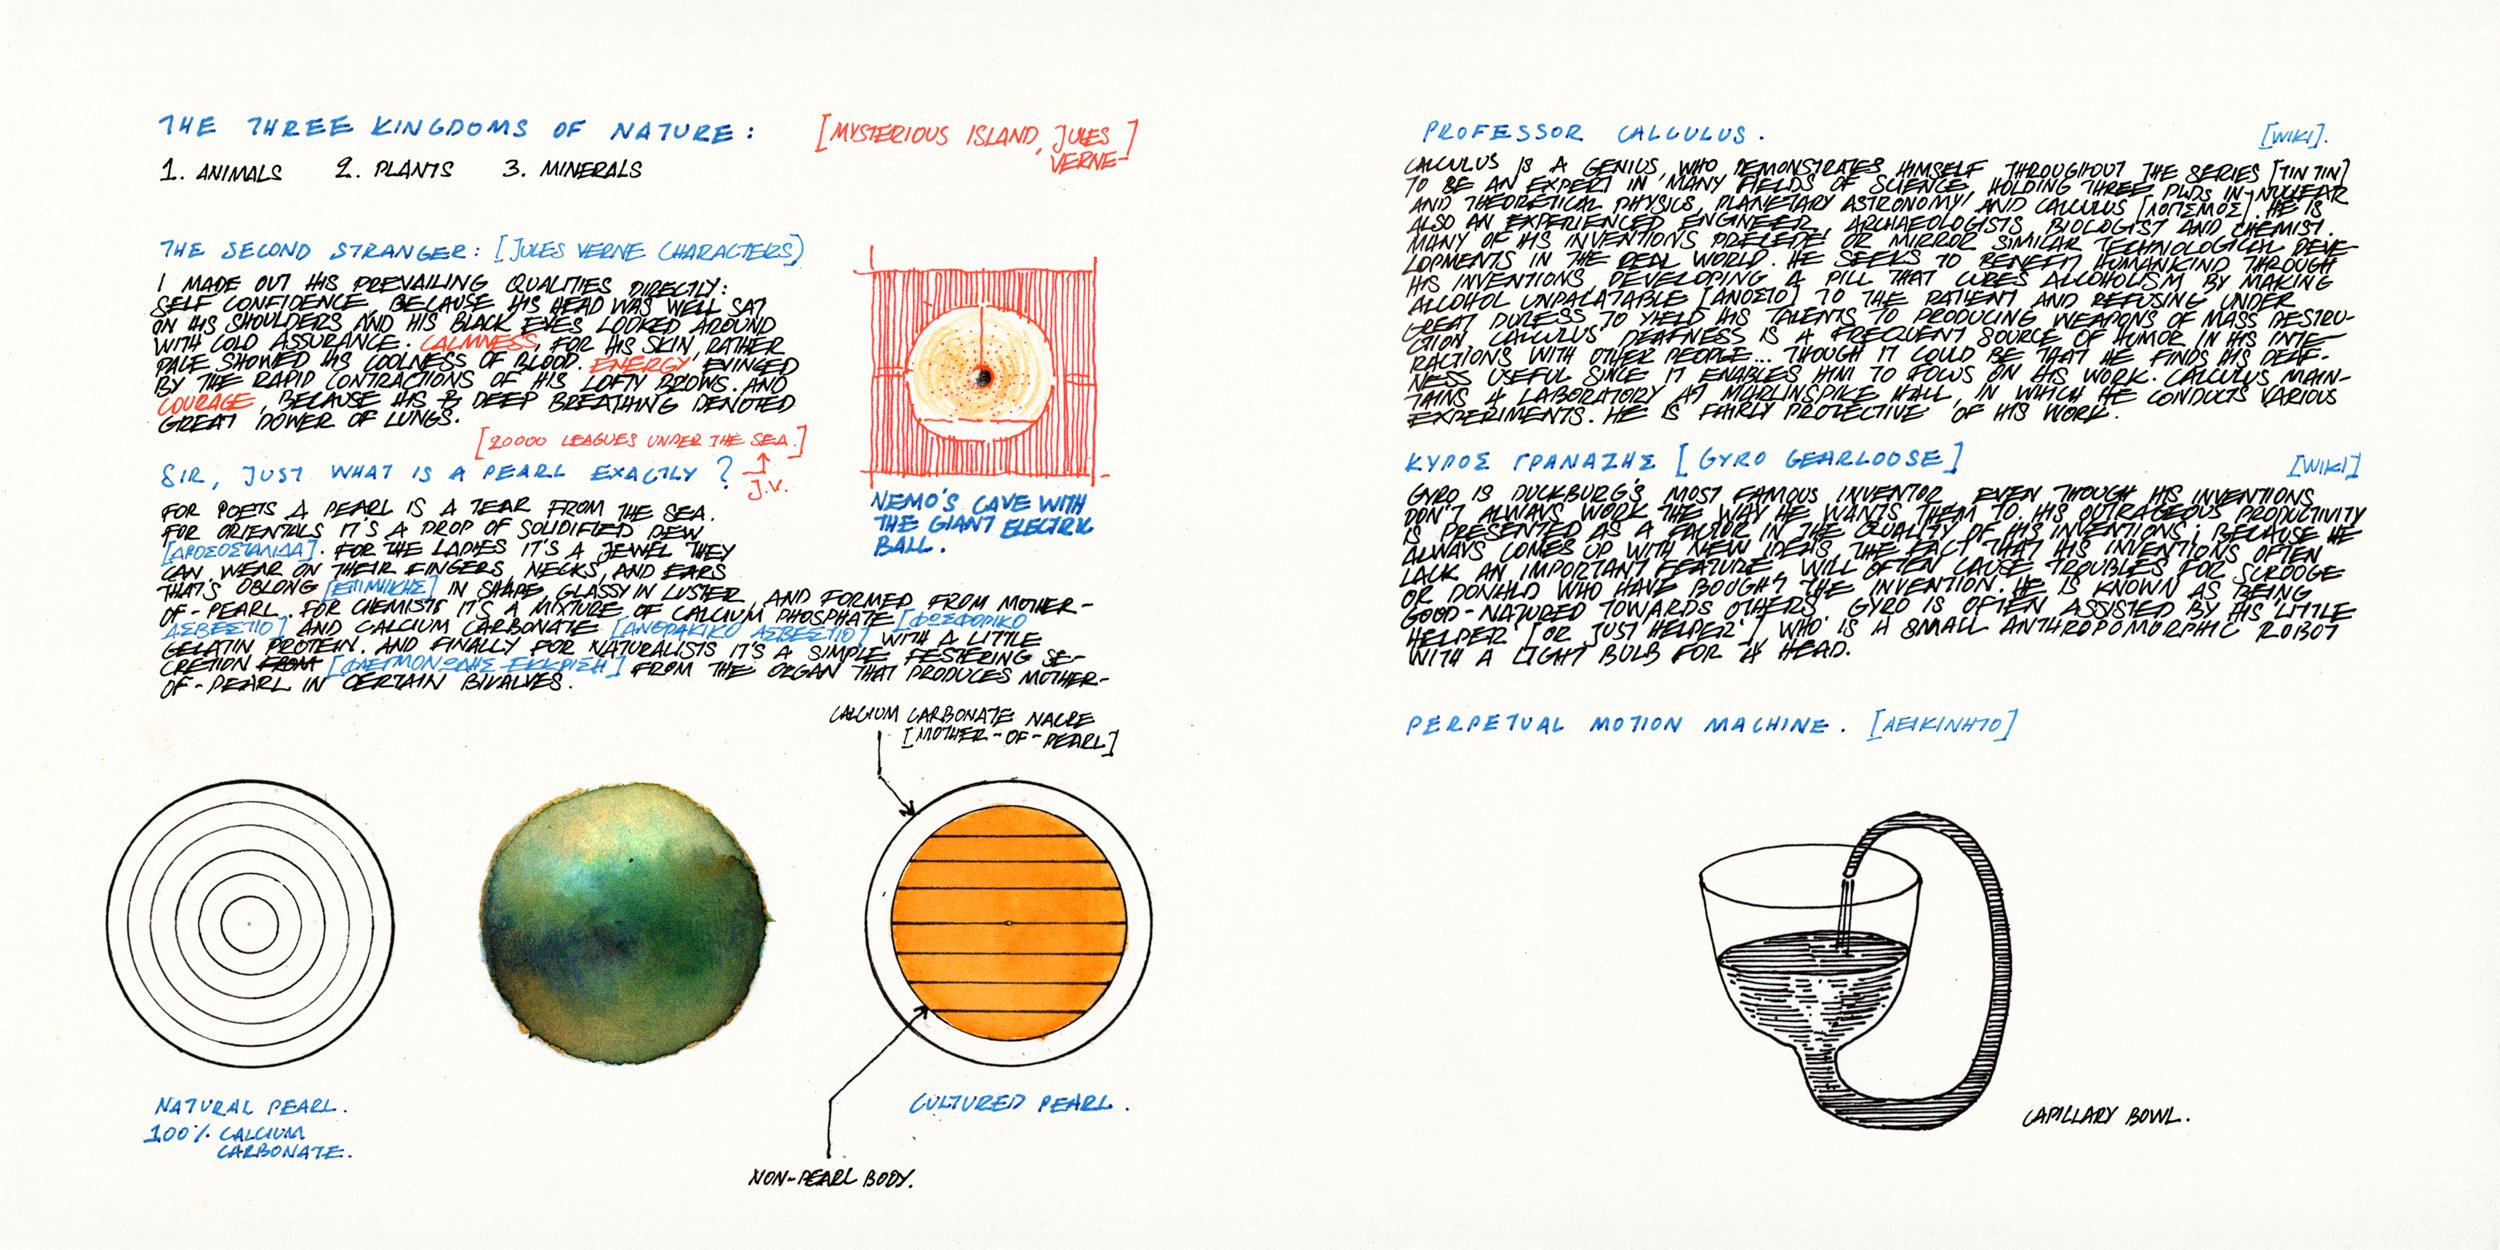 THE THREE KINGDOMS OF NATURE:
[MYSTERIOUS ISLAND, JULES
VERNE-]
1. ANIMALS 2. PLANTS 3. MINERALS
THE SECOND STRANGER: [JULES VERNE CHARACTERS]
I MADE OUT HIS PREVAILING QUALITIES DIRECTLY:
SELF CONFIDENCE, BECAUSE HIS HEAD WAS WELL SAT
ON HIS SHOULDERS AND HIS BLACK EYES LOOKED AROUND
WITH COLD ASSURANCE. CALMNESS, FOR HIS SKIN, RATHER
PALE SHOWED HIS COOLNESS OF BLOOD. ENERGY EVINCED
BY THE RAPID CONTRACTIONS OF HIS LOFTY BROWS. AND
COURAGE, BECAUSE HIS DEEP BREATHING DENOTED
GREAT POWER OF LUNGS.
[20000 LEAGUES UNDER THE SEA.]
J.V.
SIR, JUST WHAT IS A PEARL EXACTLY?
FOR POETS A PEARL IS A TEAR FROM THE SEA.
FOR ORIENTALS IT'S A DROP OF SOLIDIFIED DEW
[ΔΡΟΣΟΣΤΑΛΙΔΑ]. FOR THE LADIES IT'S A JEWEL THEY
CAN WEAR ON THEIR FINGERS, NECKS, AND EARS
THAT'S OBLONG [ΕΠΙΜΗΚΗΣ] IN SHAPE, GLASSY IN LUSTER, AND FORMED FROM MOTHER-
OF-PEARL. FOR CHEMISTS IT'S A MIXTURE OF CALCIUM PHOSPHATE [ΦΩΣΦΟΡΙΚΟ
ΑΣΒΕΣΤΙΟ] AND CALCIUM CARBONATE [ΑΝΘΡΑΚΙΚΟ ΑΣΒΕΣΤΙΟ] WITH A LITTLE
GELATIN PROTEIN. AND FINALLY FOR NATURALISTS IT'S A SIMPLE FESTERING SE-
CRETION FROM [ΦΛΕΓΜΟΝΩΔΗΣ ΕΚΚΡΙΣΗ] FROM THE ORGAN THAT PRODUCES MOTHER-
OF-PEARL IN CERTAIN BIVALVES.
NEMO'S CAVE WITH
THE GIANT ELECTRIC
BALL.
CALCIUM CARBONATE NACRE
[MOTHER-OF-PEARL]
NATURAL PEARL.
100% CALCIUM
CARBONATE.
CULTURED PEARL.
NON-PEARL BODY.
PROFESSOR CALCULUS. [WIKI].
CALCULUS IS A GENIUS, WHO DEMONSTRATES HIMSELF THROUGHOUT THE SERIES [TIN TIN]
TO BE AN EXPERT IN MANY FIELDS OF SCIENCE, HOLDING THREE PHDS IN NUCLEAR
AND THEORETICAL PHYSICS, PLANETARY ASTRONOMY AND CALCULUS [ΛΟΓΙΣΜΟΣ]. HE IS
ALSO AN EXPERIENCED ENGINEER, ARCHAEOLOGISTS, BIOLOGIST AND CHEMIST.
MANY OF HIS INVENTIONS PRECEDE OR MIRROR SIMILAR TECHNOLOGICAL DEVE-
LOPMENTS IN THE REAL WORLD. HE SEEKS TO BENEFIT HUMANKIND THROUGH
HIS INVENTIONS, DEVELOPING A PILL THAT CURES ALCOHOLISM BY MAKING
ALCOHOL UNPALATABLE [ΑΝΟΣΤΟ] TO THE PATIENT AND REFUSING UNDER
GREAT DURESS TO YIELD HIS TALENTS TO PRODUCING WEAPONS OF MASS DESTRU-
CTION. CALCULUS' DEAFNESS IS A FREQUENT SOURCE OF HUMOR IN HIS INTE-
RACTIONS WITH OTHER PEOPLE... THOUGH IT COULD BE THAT HE FINDS HIS DEAF-
NESS USEFUL SINCE IT ENABLES HIM TO FOCUS ON HIS WORK. CALCULUS MAIN-
TAINS A LABORATORY AT MARLINSPIKE HALL, IN WHICH HE CONDUCTS VARIOUS
EXPERIMENTS. HE IS FAIRLY PROTECTIVE OF HIS WORK.
ΚΥΡΟΣ ΓΡΑΝΑΖΗΣ [GYRO GEARLOOSE] [WIKI]
GYRO IS DUCKBURG'S MOST FAMOUS INVENTOR, EVEN THOUGH HIS INVENTIONS
DON'T ALWAYS WORK THE WAY HE WANTS THEM TO. HIS OUTRAGEOUS PRODUCTIVITY
IS PRESENTED AS A FACTOR IN THE QUALITY OF HIS INVENTIONS; BECAUSE HE
ALWAYS COMES UP WITH NEW IDEAS, THE FACT THAT HIS INVENTIONS OFTEN
LACK AN IMPORTANT FEATURE WILL OFTEN CAUSE TROUBLES FOR SCROOGE
OR DONALD WHO HAVE BOUGHT THE INVENTION. HE IS KNOWN AS BEING
GOOD-NATURED TOWARDS OTHERS. GYRO IS OFTEN ASSISTED BY HIS LITTLE
HELPER [OR JUST HELPER] WHO IS A SMALL ANTHROPOMORPHIC ROBOT
WITH A LIGHT BULB FOR A HEAD.
PERPETUAL MOTION MACHINE. [ΑΕΙΚΙΝΗΤΟ]
CAPILLARY BOWL.